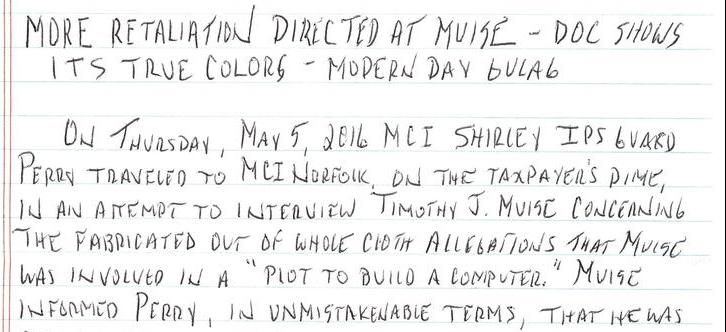 MORE RETALIATION DIRECTED AT MUISE - DOC SHOWS
ITS TRUE COLORS - MODERN DAY GULAG
ON THURSDAY, MAY 5, 2016 MCI SHIRLEY IPS GUARD
PERRY TRAVELED TO MCI NORFOLK, ON THE TAXPAYER'S DIME,
IN AN ATTEMPT TO INTERVIEW TIMOTHY J. MUISE CONCERNING
THE FABRICATED OUT OF WHOLE CLOTH ALLEGATIONS THAT MUISE
WAS INVOLVED IN A "PLOT TO BUILD A COMPUTER." MUISE
INFORMED PERRY, IN UNMISTAKENABLE TERMS, THAT HE WAS